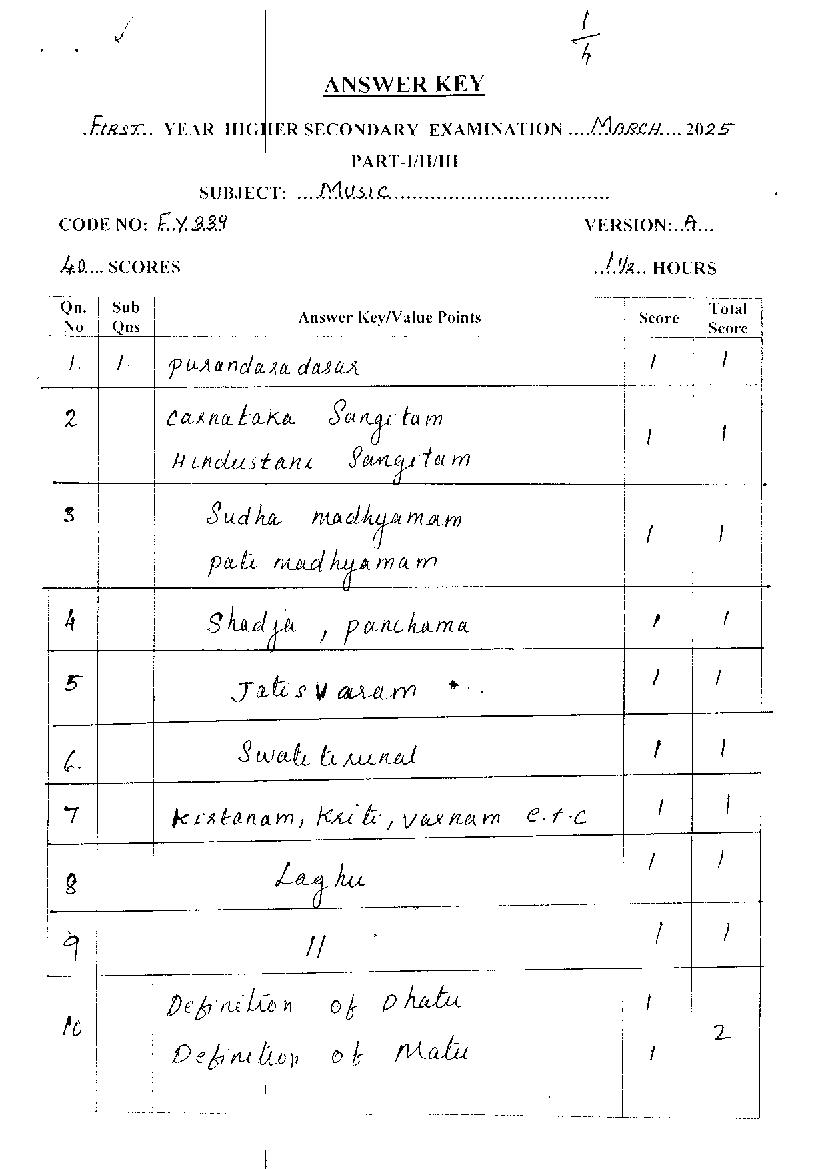 1/4
ANSWER KEY
FIRST YEAR HIGHER SECONDARY EXAMINATION ....MARCH.... 2025
PART-I/II/III
SUBJECT: ....Music....................................
CODE NO: F.Y.339 VERSION:..A...
40... SCORES ..1½.. HOURS
Qn. No Sub Qns Answer Key/Value Points Score Total Score
1. 1. purandaradasar 1 1
2 Carnataka Sangitam
Hindustani Sangitam 1 1
3 Sudha madhyamam
pati madhyamam 1 1
4 Shadja , panchama 1 1
5 Jatisvaram 1 1
6. Swati tirunal 1 1
7 kirtanam, kriti, varnam e.t.c 1 1
8 Laghu 1 1
9 11 1 1
10 Definition of Dhatu 1
Definition of Matu 1 2